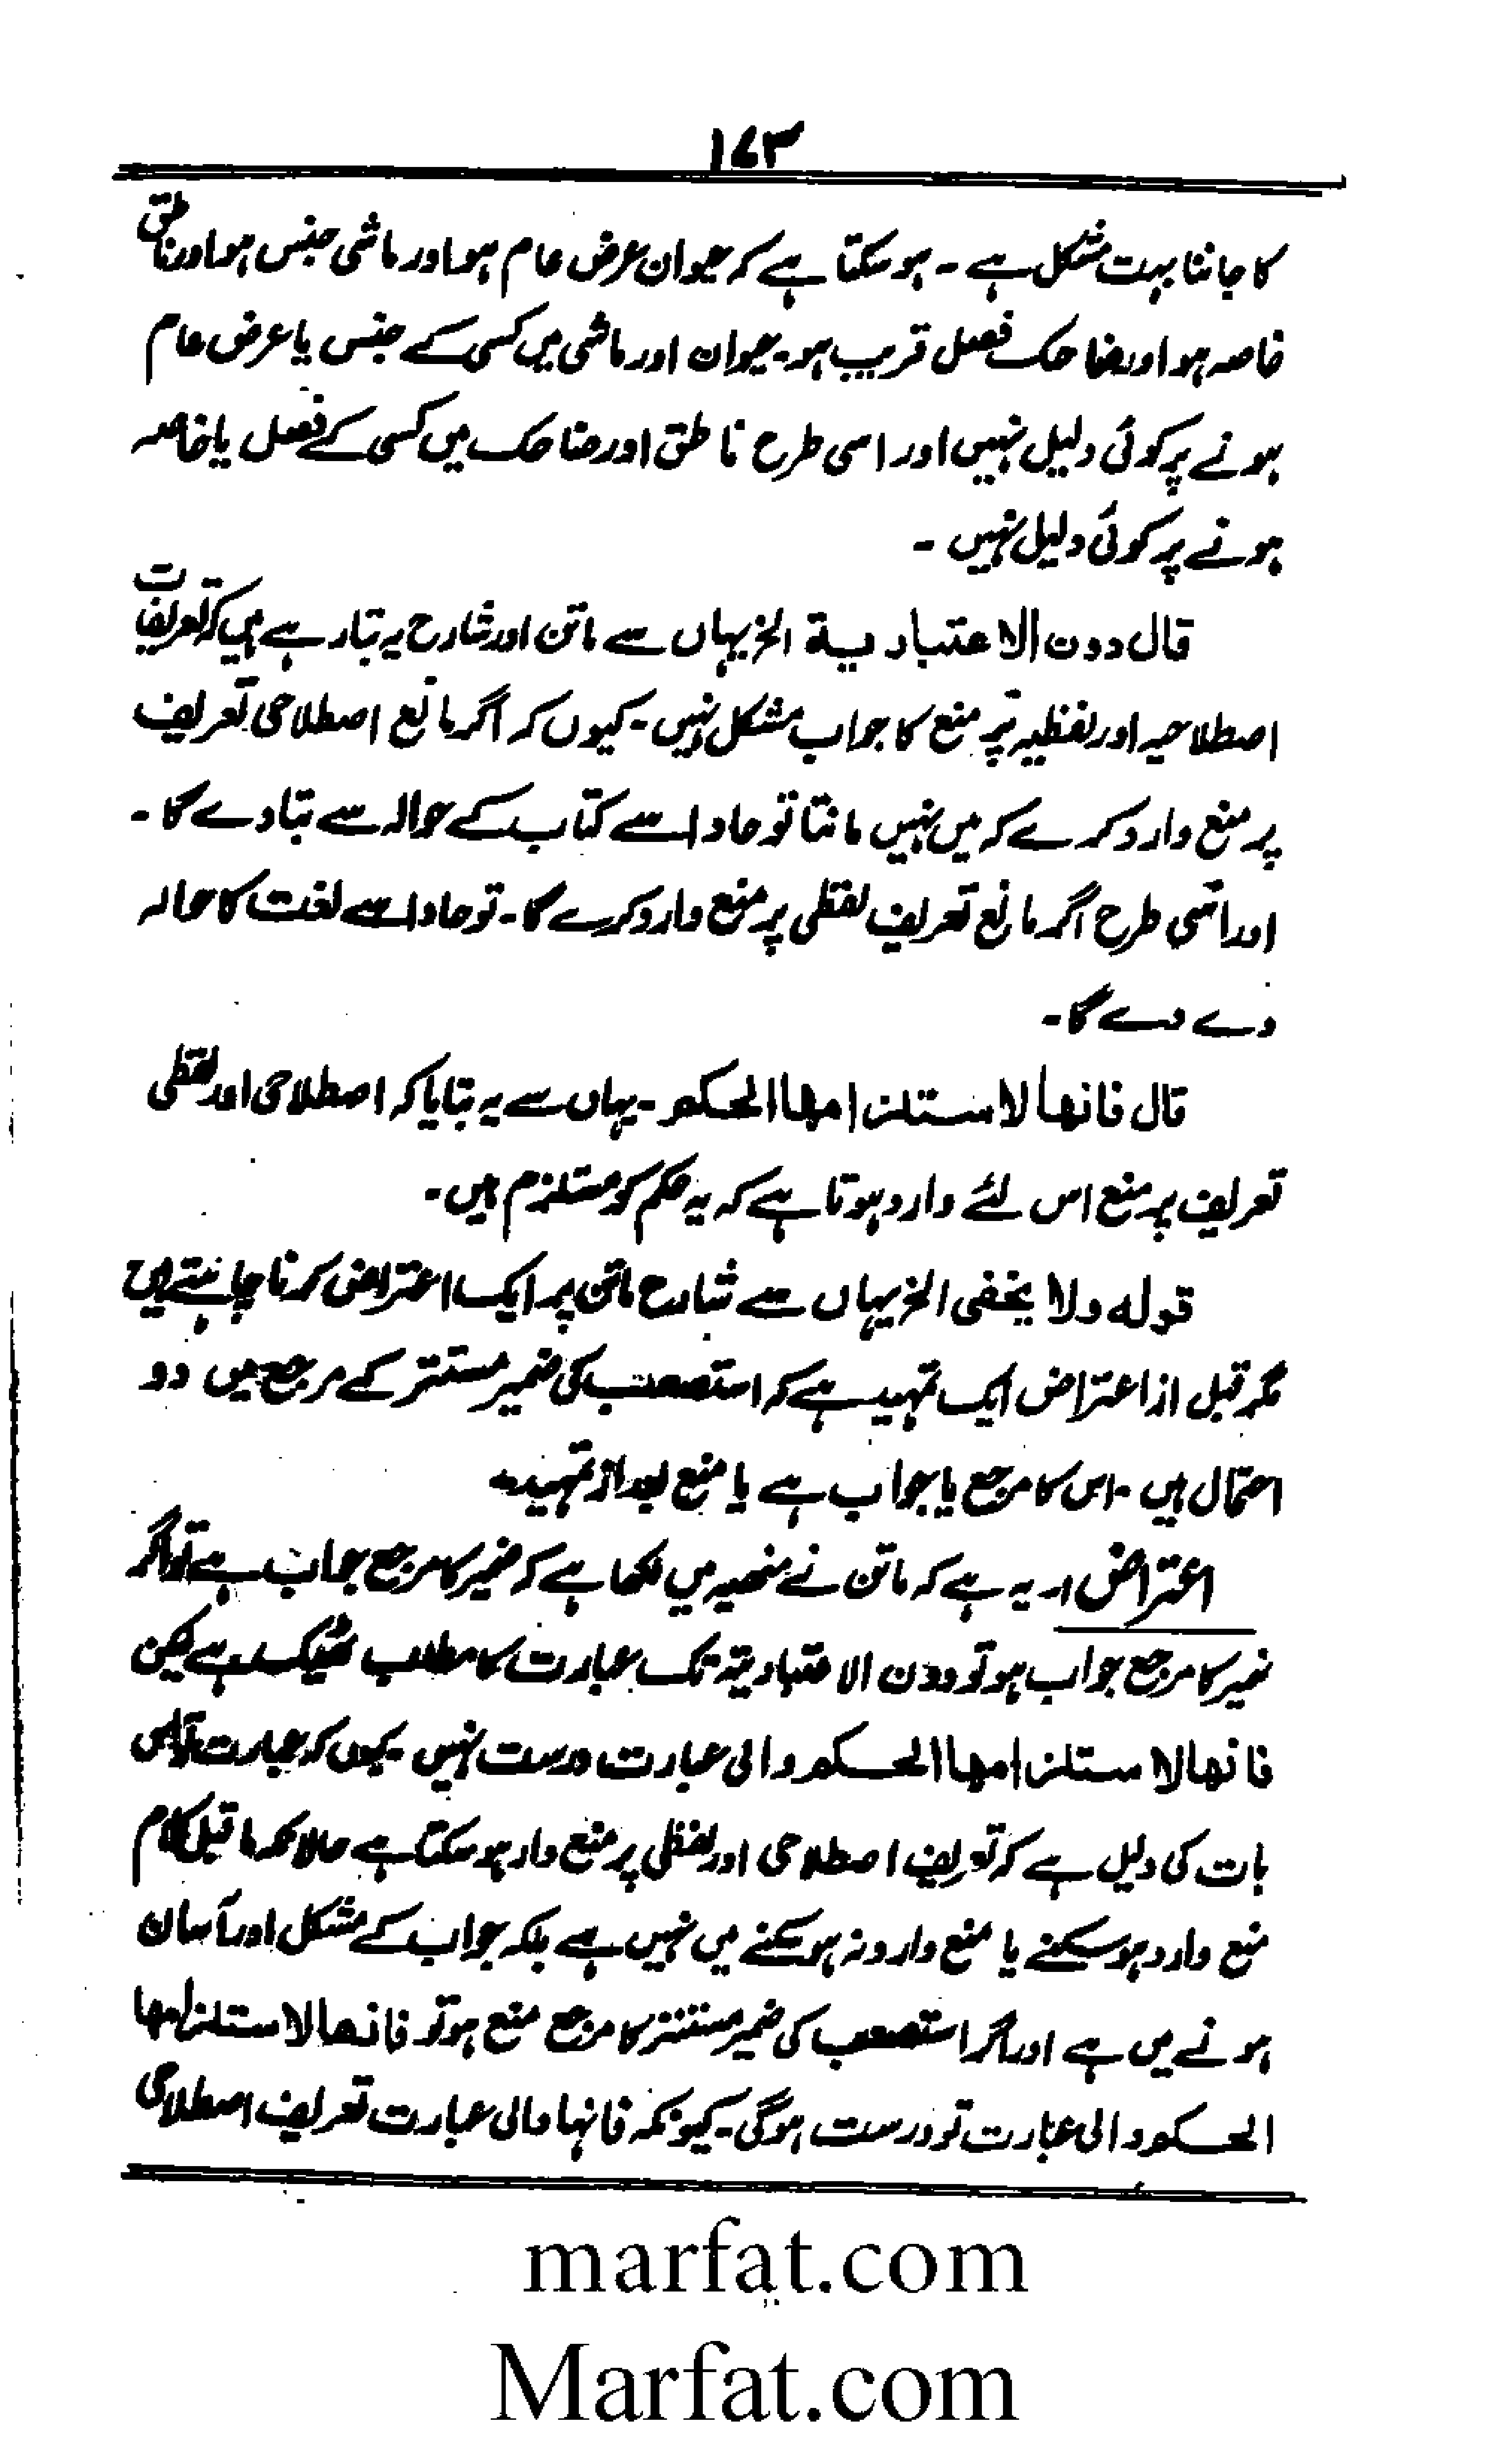 ۱۷۳
کا جاننا بہت مشکل ہے ۔ ہو سکتا ہے کہ حیوان عرض عام ہو اور ماشی جنس ہو اور ناطق
خاصہ ہو اور ضاحک فصل قریب ہو۔ حیوان اور ماشی میں کسی کے جنس یا عرض عام
ہونے پر کوئی دلیل نہیں اور اسی طرح ناطق اور ضاحک میں کسی کے فصل یا خاصہ
ہونے پر کوئی دلیل نہیں ۔
قال دون الاعتبادية الخ یہاں سے ماتن اور شارح یہ بتا رہے ہیں کہ تعریفات
اصطلاحیہ اور لفظیہ پر منع کا جواب مشکل نہیں ۔ کیوں کہ اگر مانع اصطلاحی تعریف
پر منع وارد کرے کہ میں نہیں مانتا تو حاد اسے کتاب کے حوالہ سے بتا دے گا ۔
اور اسی طرح اگر مانع تعریف لفظی پر منع وارد کرے گا ۔ تو حاد اسے لغت کا حوالہ
دے دے گا ۔
قال فانها لاستلزامها الحكم ۔ یہاں سے یہ بتایا کہ اصطلاحی اور لفظی
تعریف پر منع اس لئے وارد ہوتا ہے کہ یہ حکم کو مستلزم ہیں ۔
قوله ولا يخفى الخ یہاں سے شارح ماتن پر ایک اعتراض کرنا چاہتے ہیں
مگر قبل از اعتراض ایک تمہید ہے کہ استصعب کی ضمیر مستتر کے مرجع میں دو
احتمال ہیں ۔ اس کا مرجع یا جواب ہے یا منع بعد از تمہید ۔
اعتراض :۔ یہ ہے کہ ماتن نے منھیہ میں لکھا ہے کہ ضمیر کا مرجع جواب ہے تو اگر
ضمیر کا مرجع جواب ہو تو دون الاعتبادیۃ تک عبارت کا مطلب ٹھیک ہے لیکن
فانها لاستلزامها الحكم والی عبارت درست نہیں ۔ کیوں کہ عبارت تو اس
بات کی دلیل ہے کہ تعریف اصطلاحی اور لفظی پر منع وارد ہو سکتا ہے حالانکہ ماقبل کلام
منع وارد ہو سکنے یا منع وارد نہ ہو سکنے میں نہیں ہے بلکہ جواب کے مشکل اور آسان
ہونے میں ہے اور اگر استصعب کی ضمیر مستتر کا مرجع منع ہو تو فانها لاستلزامها
الحكم والی عبارت تو درست ہوگی ۔ کیونکہ فانہا والی عبارت تعریف اصطلاحی
marfat.com
Marfat.com